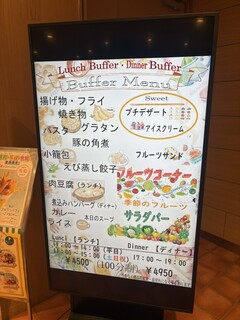 Lunch Buffer・Dinner Buffer
Buffer Menu
揚げ物・フライ
焼き物
パスタ グラタン
豚の角煮
小籠包
えび蒸し餃子
肉豆腐(ランチ)
煮込みハンバーグ(ディナー)
カレー
ライス 本日のスープ
Sweet
プチデザート
アイスクリーム
フルーツサンド
フルーツコーナー
季節のフルーツ
サラダバー
【ランチ】
(平日)
(土日祝)
¥4500 (100分制)
Dinner 【ディナー】
17:00 ~ 19:00
¥4950